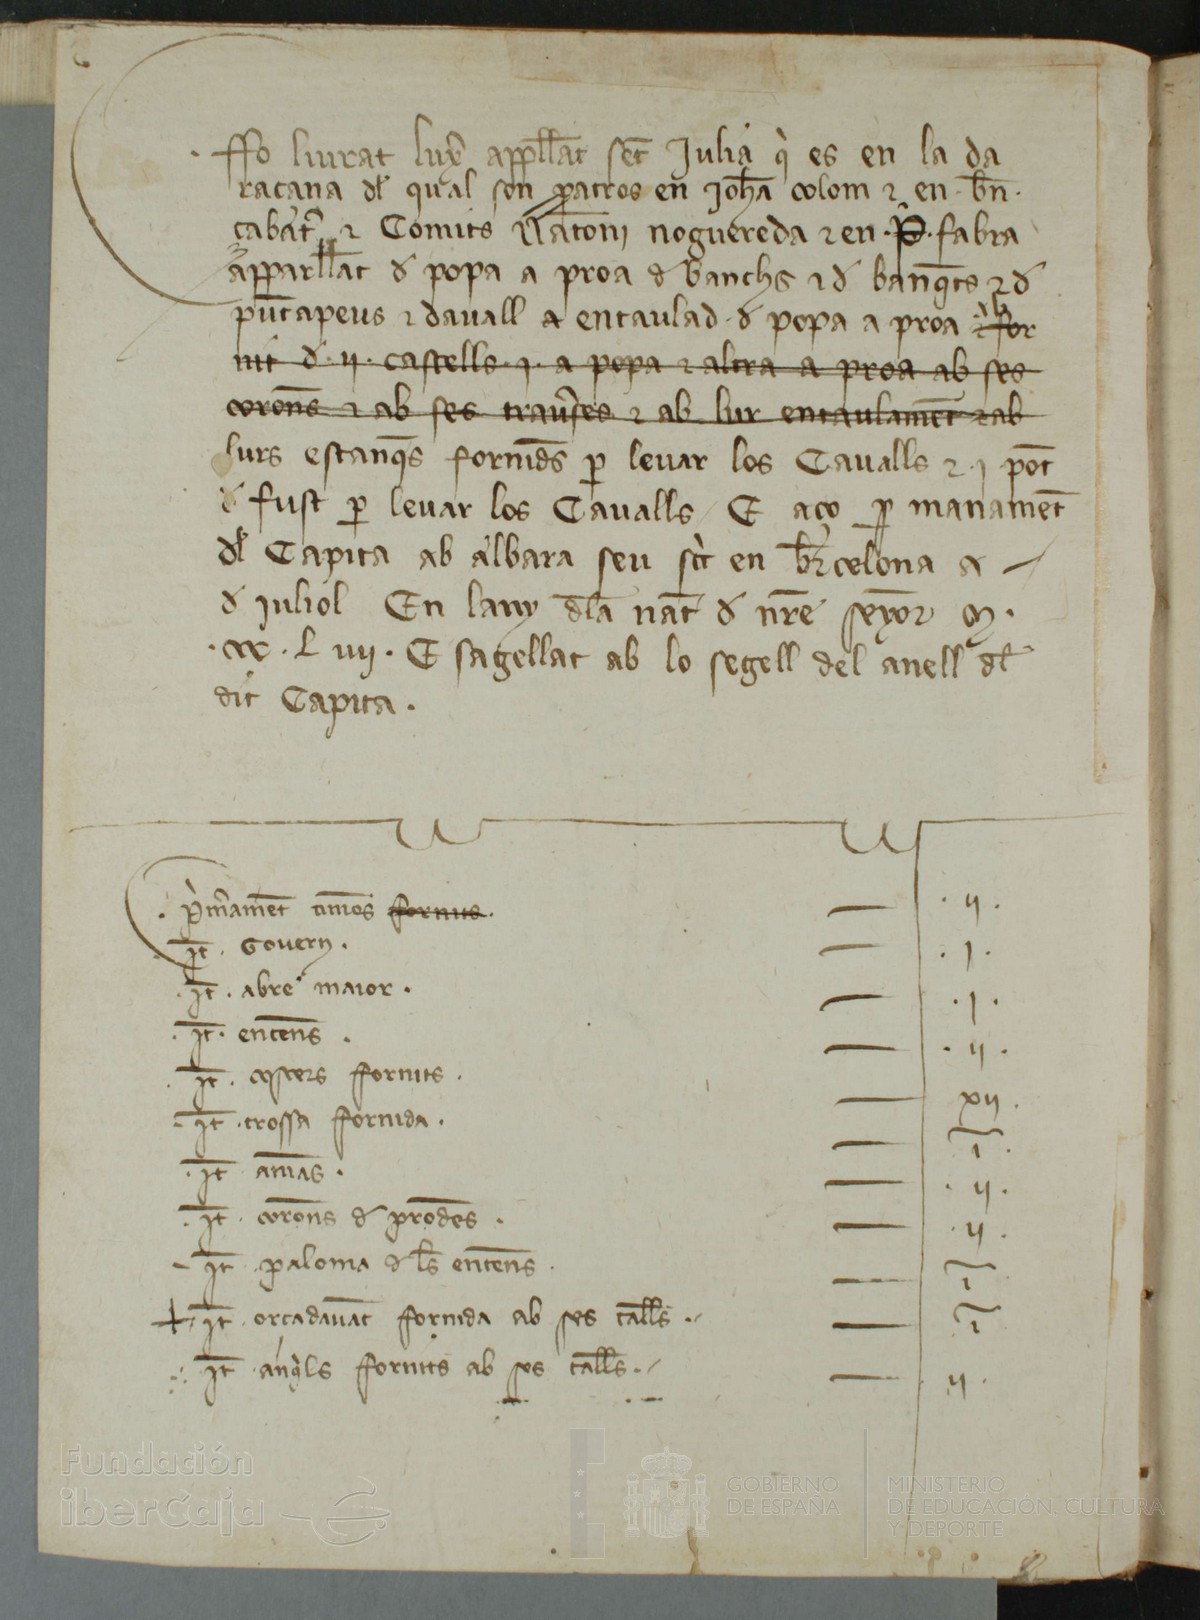 ffo liurat luny appellat sent Julia qi es en la da
raçana del qual son patros en Joha colom z en bn.
çabat z Comits Natoni noguereda z en .P. fabra
apparllat d popa a proa d banchs z d banqts z d
puntapeus z davall a entaulad d popa a proa z for
nit d .ij. castells .j. a popa z altra a proa ab ses
corons z ab ses trauses z ab lur entaulament z ab
lurs estanqs fornids p levar los Cavalls z .j. pot
d fust p levar los Cavalls E aço p manament
del Capita ab albara seu scrit en barcelona a
d juliol En lany dla nat d nre senyor M.
.ccc. L vij. E sagellat ab lo segell del anell del
dit Capita.
primerament timos fornits. .ij.
It. Govern. .j.
It. abre maior. .j.
It. entens. .ij.
It. coscers fornits. xij.
It. trossa fornida. .i.
It. amas. .ij.
It. corons d prodes. .ij.
It. paloma d les entens. i
It. orcadavat fornida ab ses talls. i
It. anqls fornits ab ses talls. .ij.
Fundación
iberCaja
GOBIERNO
DE ESPAÑA
MINISTERIO
DE EDUCACIÓN, CULTURA
Y DEPORTE